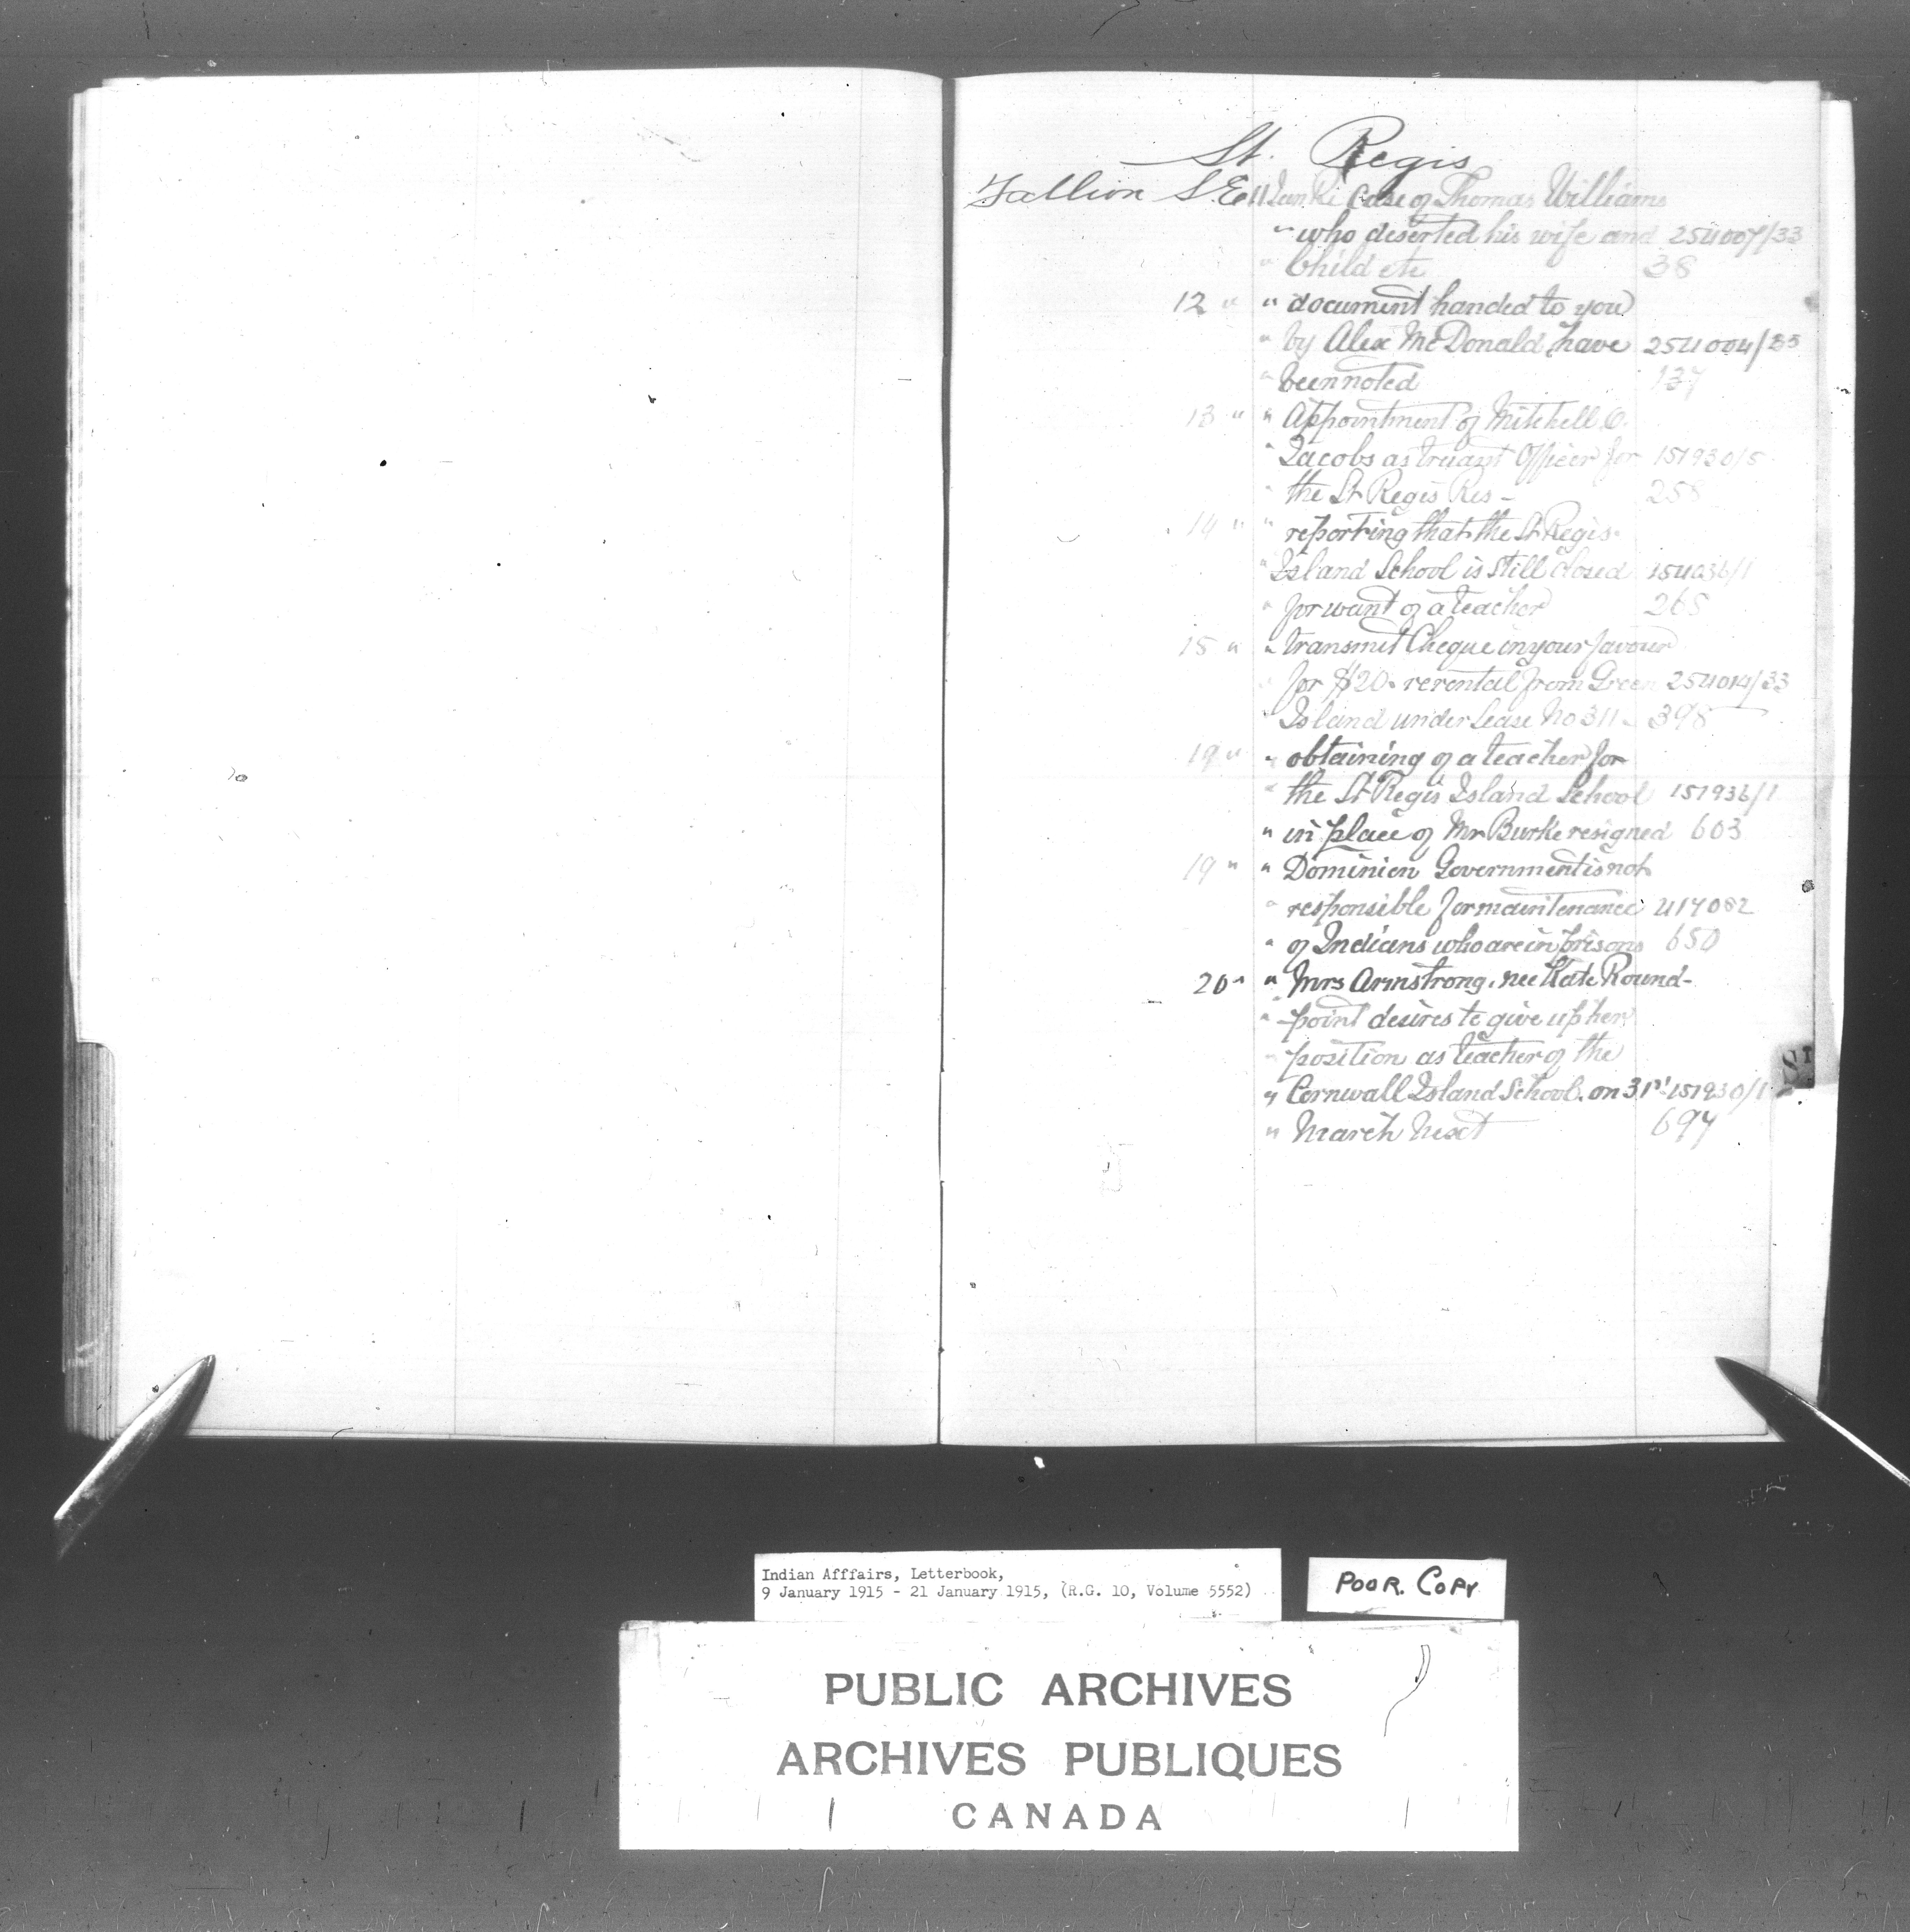 St. Regis
Fallion S.E. 11 Jan Re Case of Thomas Williams
" who deserted his wife and 254007/33
" Child etc 38
12 " " document handed to you
" by Alex McDonald have 254004/33
" been noted 137
13 " " Appointment of Mitchell C.
" Jacobs as truant Officer for 151930/5
" the St Regis Res - 258
14 " " reporting that the St Regis
" Island School is still closed 154036/1
" for want of a teacher 265
15 " " transmit Cheque in your favour
" for $20. re rental from Green 254014/33
" Island under Lease No 311 - 398
19 " " obtaining of a teacher for
" the St Regis Island School 151936/1
" in place of Mr Burke resigned 603
19 " " Dominion Government is not
" responsible for maintenance 417082
" of Indians who are in prisons 650
20 " " Mrs Armstrong, nee Kate Round-
" -point desires to give up her
" position as teacher of the
" Cornwall Island School, on 31st 151930/1
" March Next 697
Indian Afffairs, Letterbook,
9 January 1915 - 21 January 1915, (R.G. 10, Volume 5552)
POOR. COPY
PUBLIC ARCHIVES
ARCHIVES PUBLIQUES
CANADA